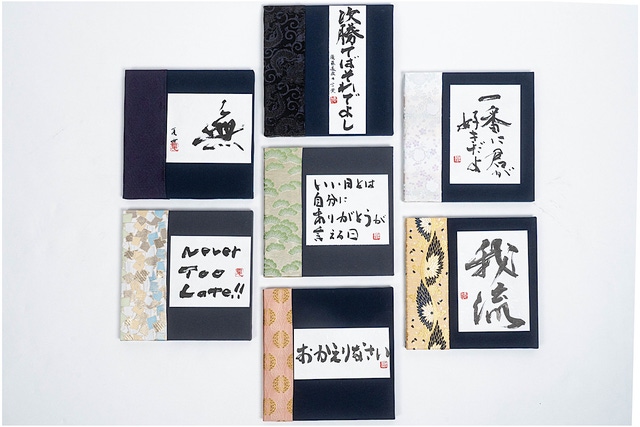 次勝てばそれでよし
無
一番に君が
好きだよ
いい日とは
自分に
ありがとうが
言える日
Never
Too
Late!!
我流
おかえりなさい